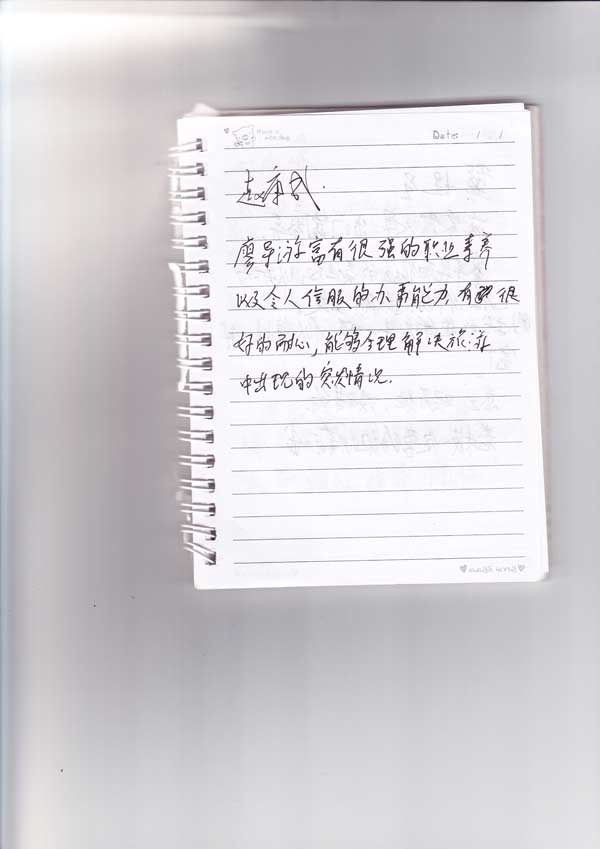 Date: 1 . 1
赵康武.
廖导游富有很强的职业素养
以及令人信服的办事能力,有很
好的耐心,能够合理解决旅游
中出现的突发情况.